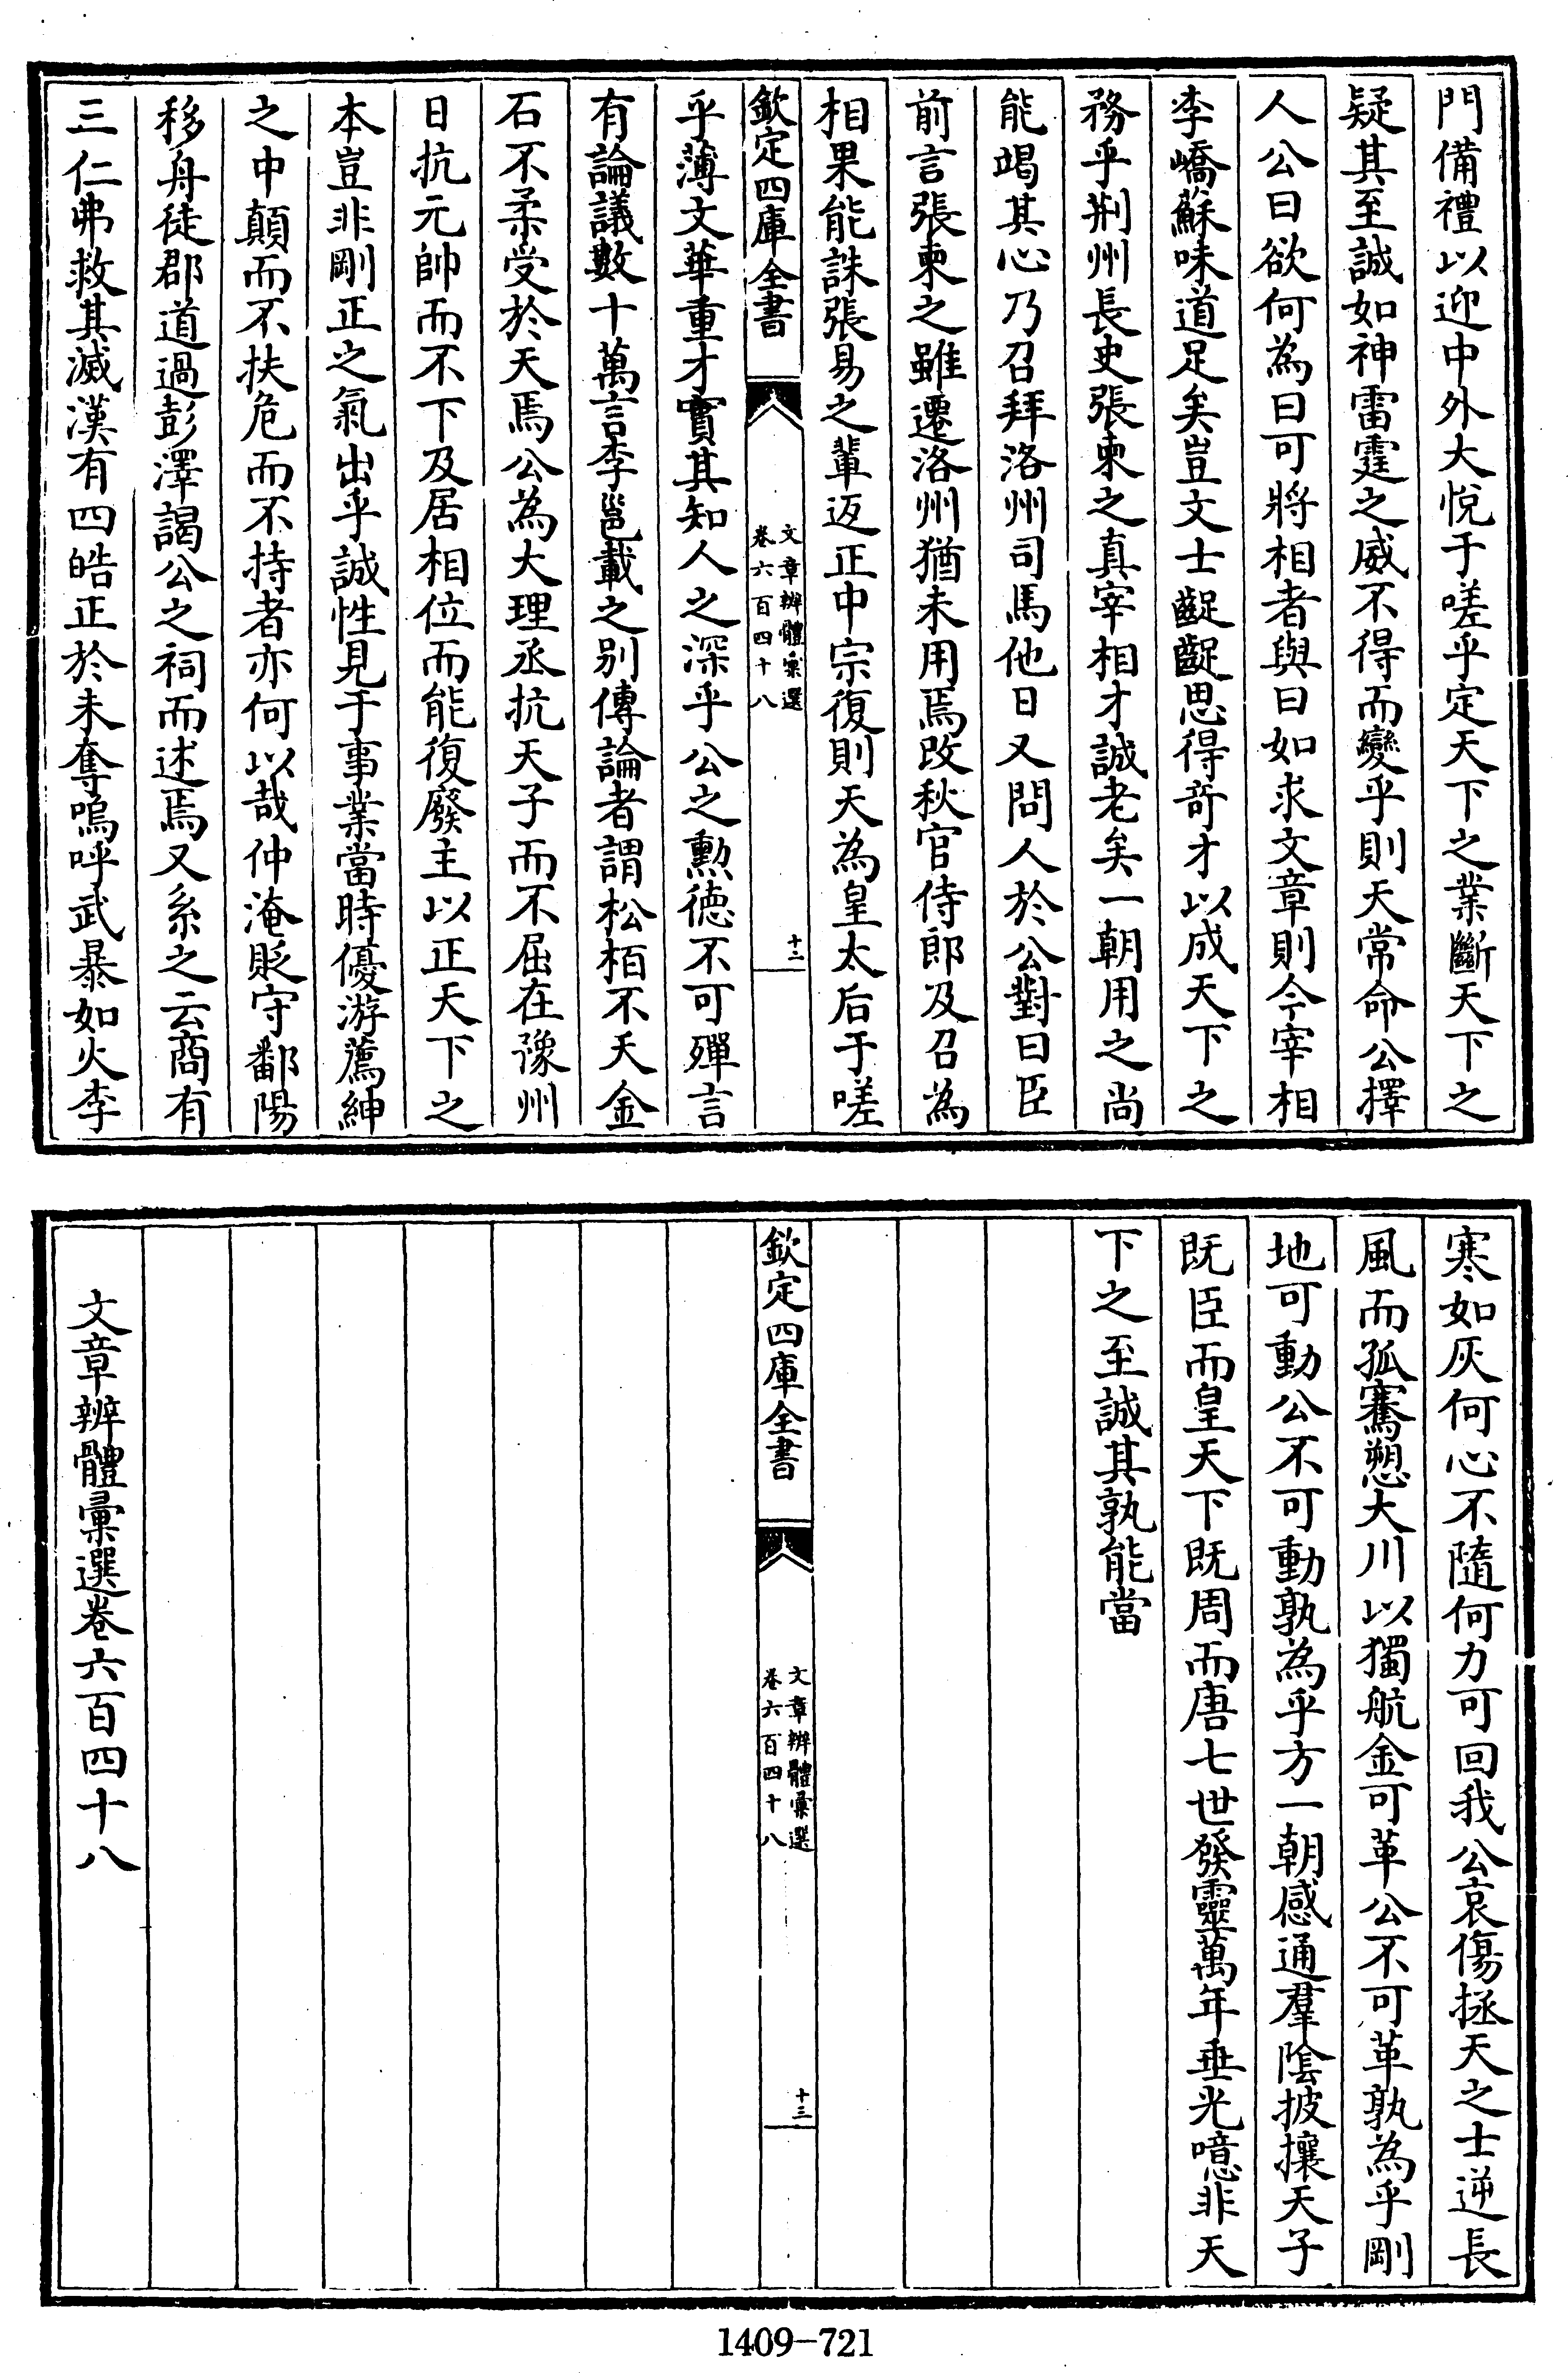 門備禮以迎中外大悅于嗟乎定天下之業斷天下之
疑其至誠如神雷霆之威不得而變乎則天常命公擇
人公曰欲何為曰可將相者與曰如求文章則今宰相
李嶠蘇味道足矣豈文士齪齪思得奇才以成天下之
務乎荆州長史張柬之真宰相才誠老矣一朝用之尚
能竭其心乃召拜洛州司馬他日又問人於公對曰臣
前言張柬之雖遷洛州猶未用焉改秋官侍郎及召為
相果能誅張易之輩返正中宗復則天為皇太后于嗟
欽定四庫全書
文章辨體彙選
卷六百四十八
十二
乎薄文華重才實其知人之深乎公之勲徳不可殫言
有論議數十萬言李邕載之别傳論者謂松栢不夭金
石不柔受於天焉公為大理丞抗天子而不屈在豫州
日抗元帥而不下及居相位而能復廢主以正天下之
本豈非剛正之氣出乎誠性見于事業當時優游薦紳
之中顛而不扶危而不持者亦何以哉仲淹貶守鄱陽
移舟徒郡道過彭澤謁公之祠而述焉又系之云商有
三仁弗救其滅漢有四皓正於未奪嗚呼武暴如火李
寒如灰何心不隨何力可回我公哀傷拯天之士逆長
風而孤騫愬大川以獨航金可革公不可革孰為乎剛
地可動公不可動孰為乎方一朝感通羣陰披攘天子
既臣而皇天下既周而唐七世發靈萬年垂光噫非天
下之至誠其孰能當
欽定四庫全書
文章辨體彙選
卷六百四十八
十三
文章辨體彙選卷六百四十八
1409-721